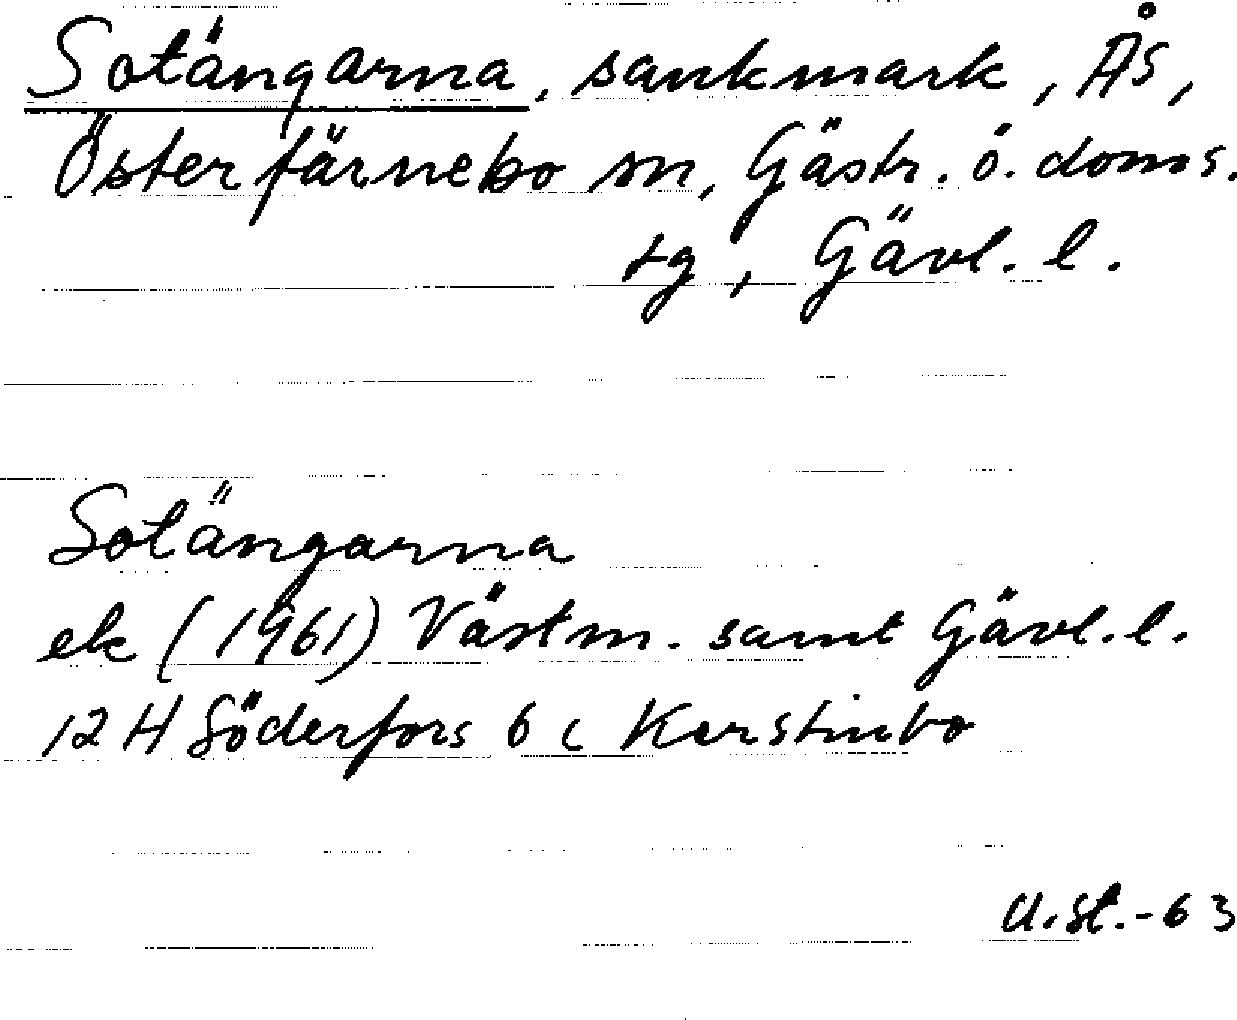 Sotängarna, sankmark, Ås,
Österfärnebo sn, Gästr. ö. doms.
tg, Gävl. l.
Sotängarna
ek (1961) Västm. samt Gävl. l.
12 H Söderfors 6 c Kerstinbo
U.St.-63